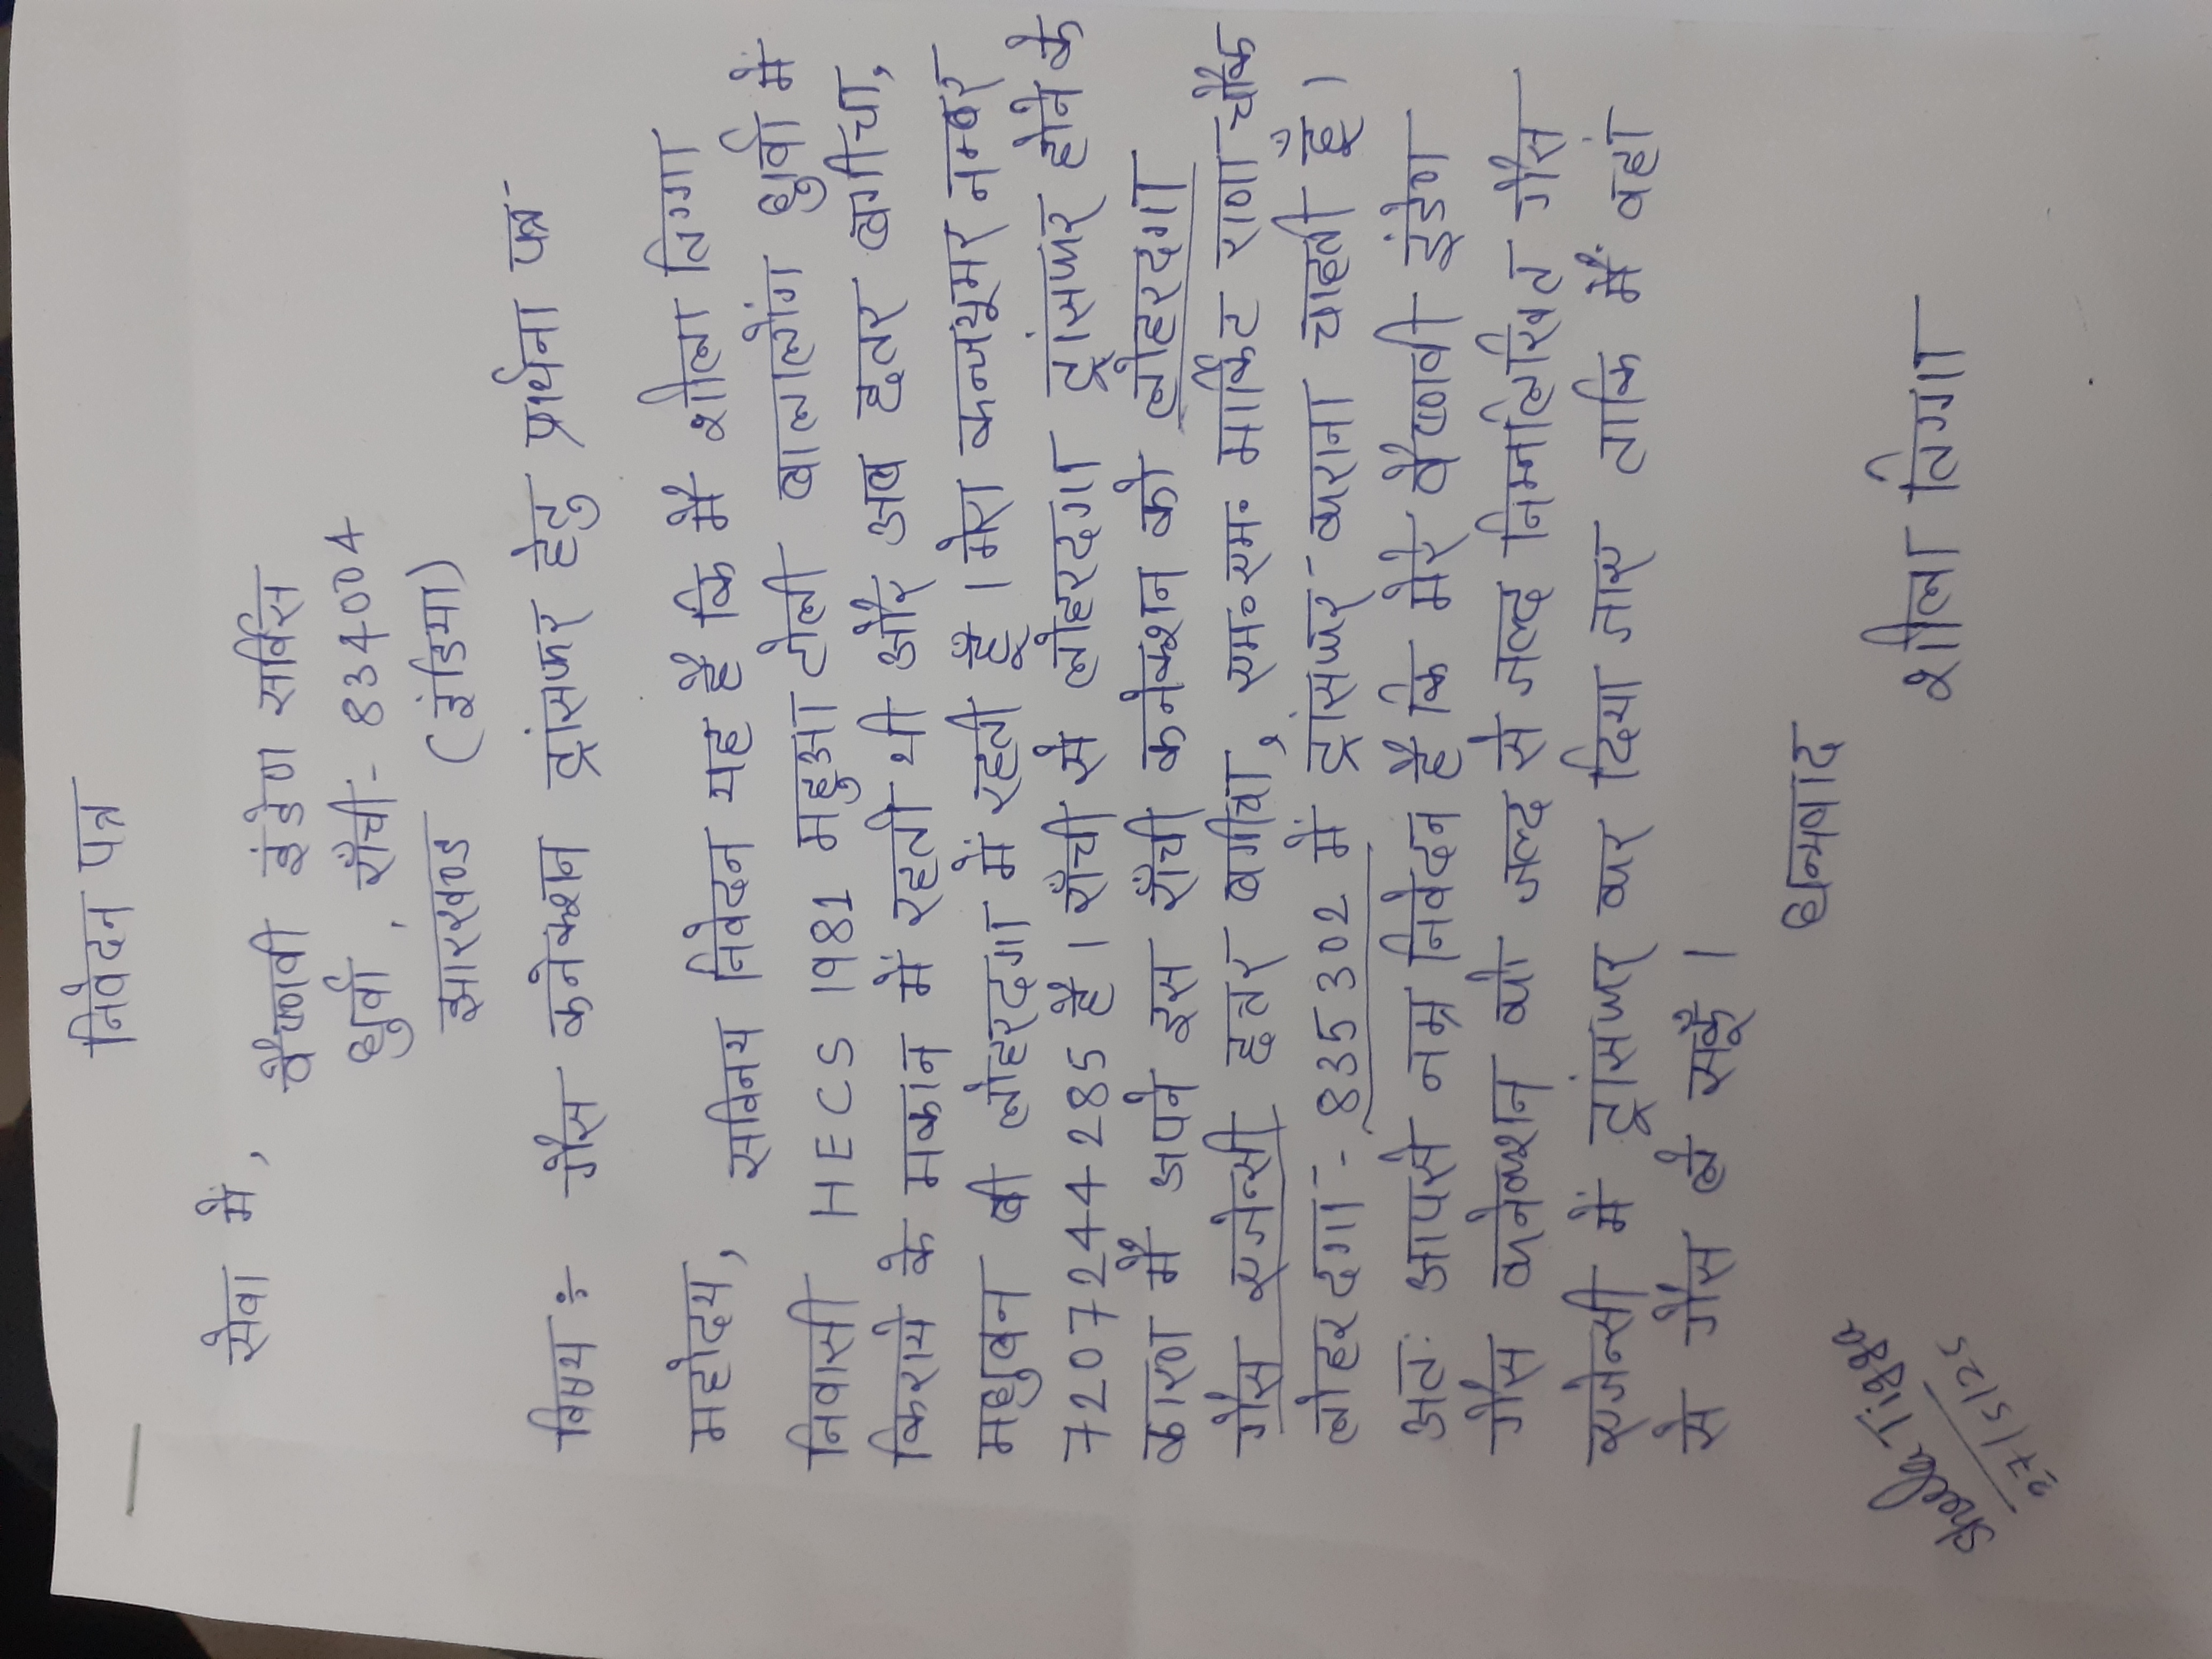 निवेदन पत्र
सेवा में,
वैष्णवी इंडेण सर्विस
धुर्वा, राँची- 834004
झारखण्ड (इंडिया)
विषय ÷ गैस कनेक्शन ट्रांसफर हेतु प्रार्थना पत्र
महोदय,
सविनय निवेदन यह है कि मैं शीला तिग्गा
निवासी HECS 1981 महुआ टोली बालालोंग धुर्वा में
किराये के मकान में रहती थी और अब हतर बगीचा,
मधुबन बी लोहरदगा में रहती हूँ। मेरा कन्ज्यूमर नम्बर
7207244285 है। राँची से लोहरदगा ट्रांसफर होने के
कारण मैं अपने इस राँची कनेक्शन को लोहरदगा
गैस एजेन्सी हतर बगीचा, एम॰ एम॰ मार्केट राणा चौक
लोहरदगा - 835302 में ट्रांसफर कराना चाहती हूँ।
अतः आपसे नम्र निवेदन है कि मेरे वैष्णवी इंडेण
गैस कनेक्शन को जल्द से जल्द निम्नलिखित गैस
एजेन्सी में ट्रांसफर कर दिया जाए ताकि मैं वहां
से गैस ले सकूँ।
धन्यवाद
शीला तिग्गा
Sheela Tigga
27/5/25